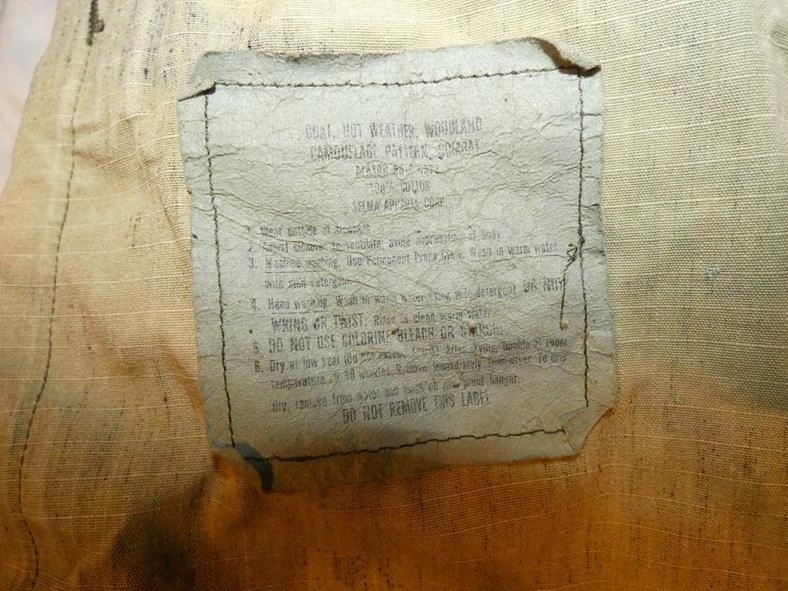 COAT, HOT WEATHER, WOODLAND
CAMOUFLAGE PATTERN, COMBAT
100% COTTON
SELMA APPAREL CORP.
1. Wear outside of trousers.
2. Adjust closures to ventilate; avoid of body.
3. Machine washing. Use Permanent Press Cycle. Wash in warm water
with mild detergent.
4. Hand washing. Wash in warm water using mild detergent. DO NOT
WRING OR TWIST. Rinse in clean warm water.
5. DO NOT USE CHLORINE BLEACH OR STARCH.
6. Dry at low heat (do not exceed After drying, tumble at room
temperature 10 minutes. Remove immediately from dryer. To drip
dry, remove from water and place on rust proof hanger.
DO NOT REMOVE THIS LABEL